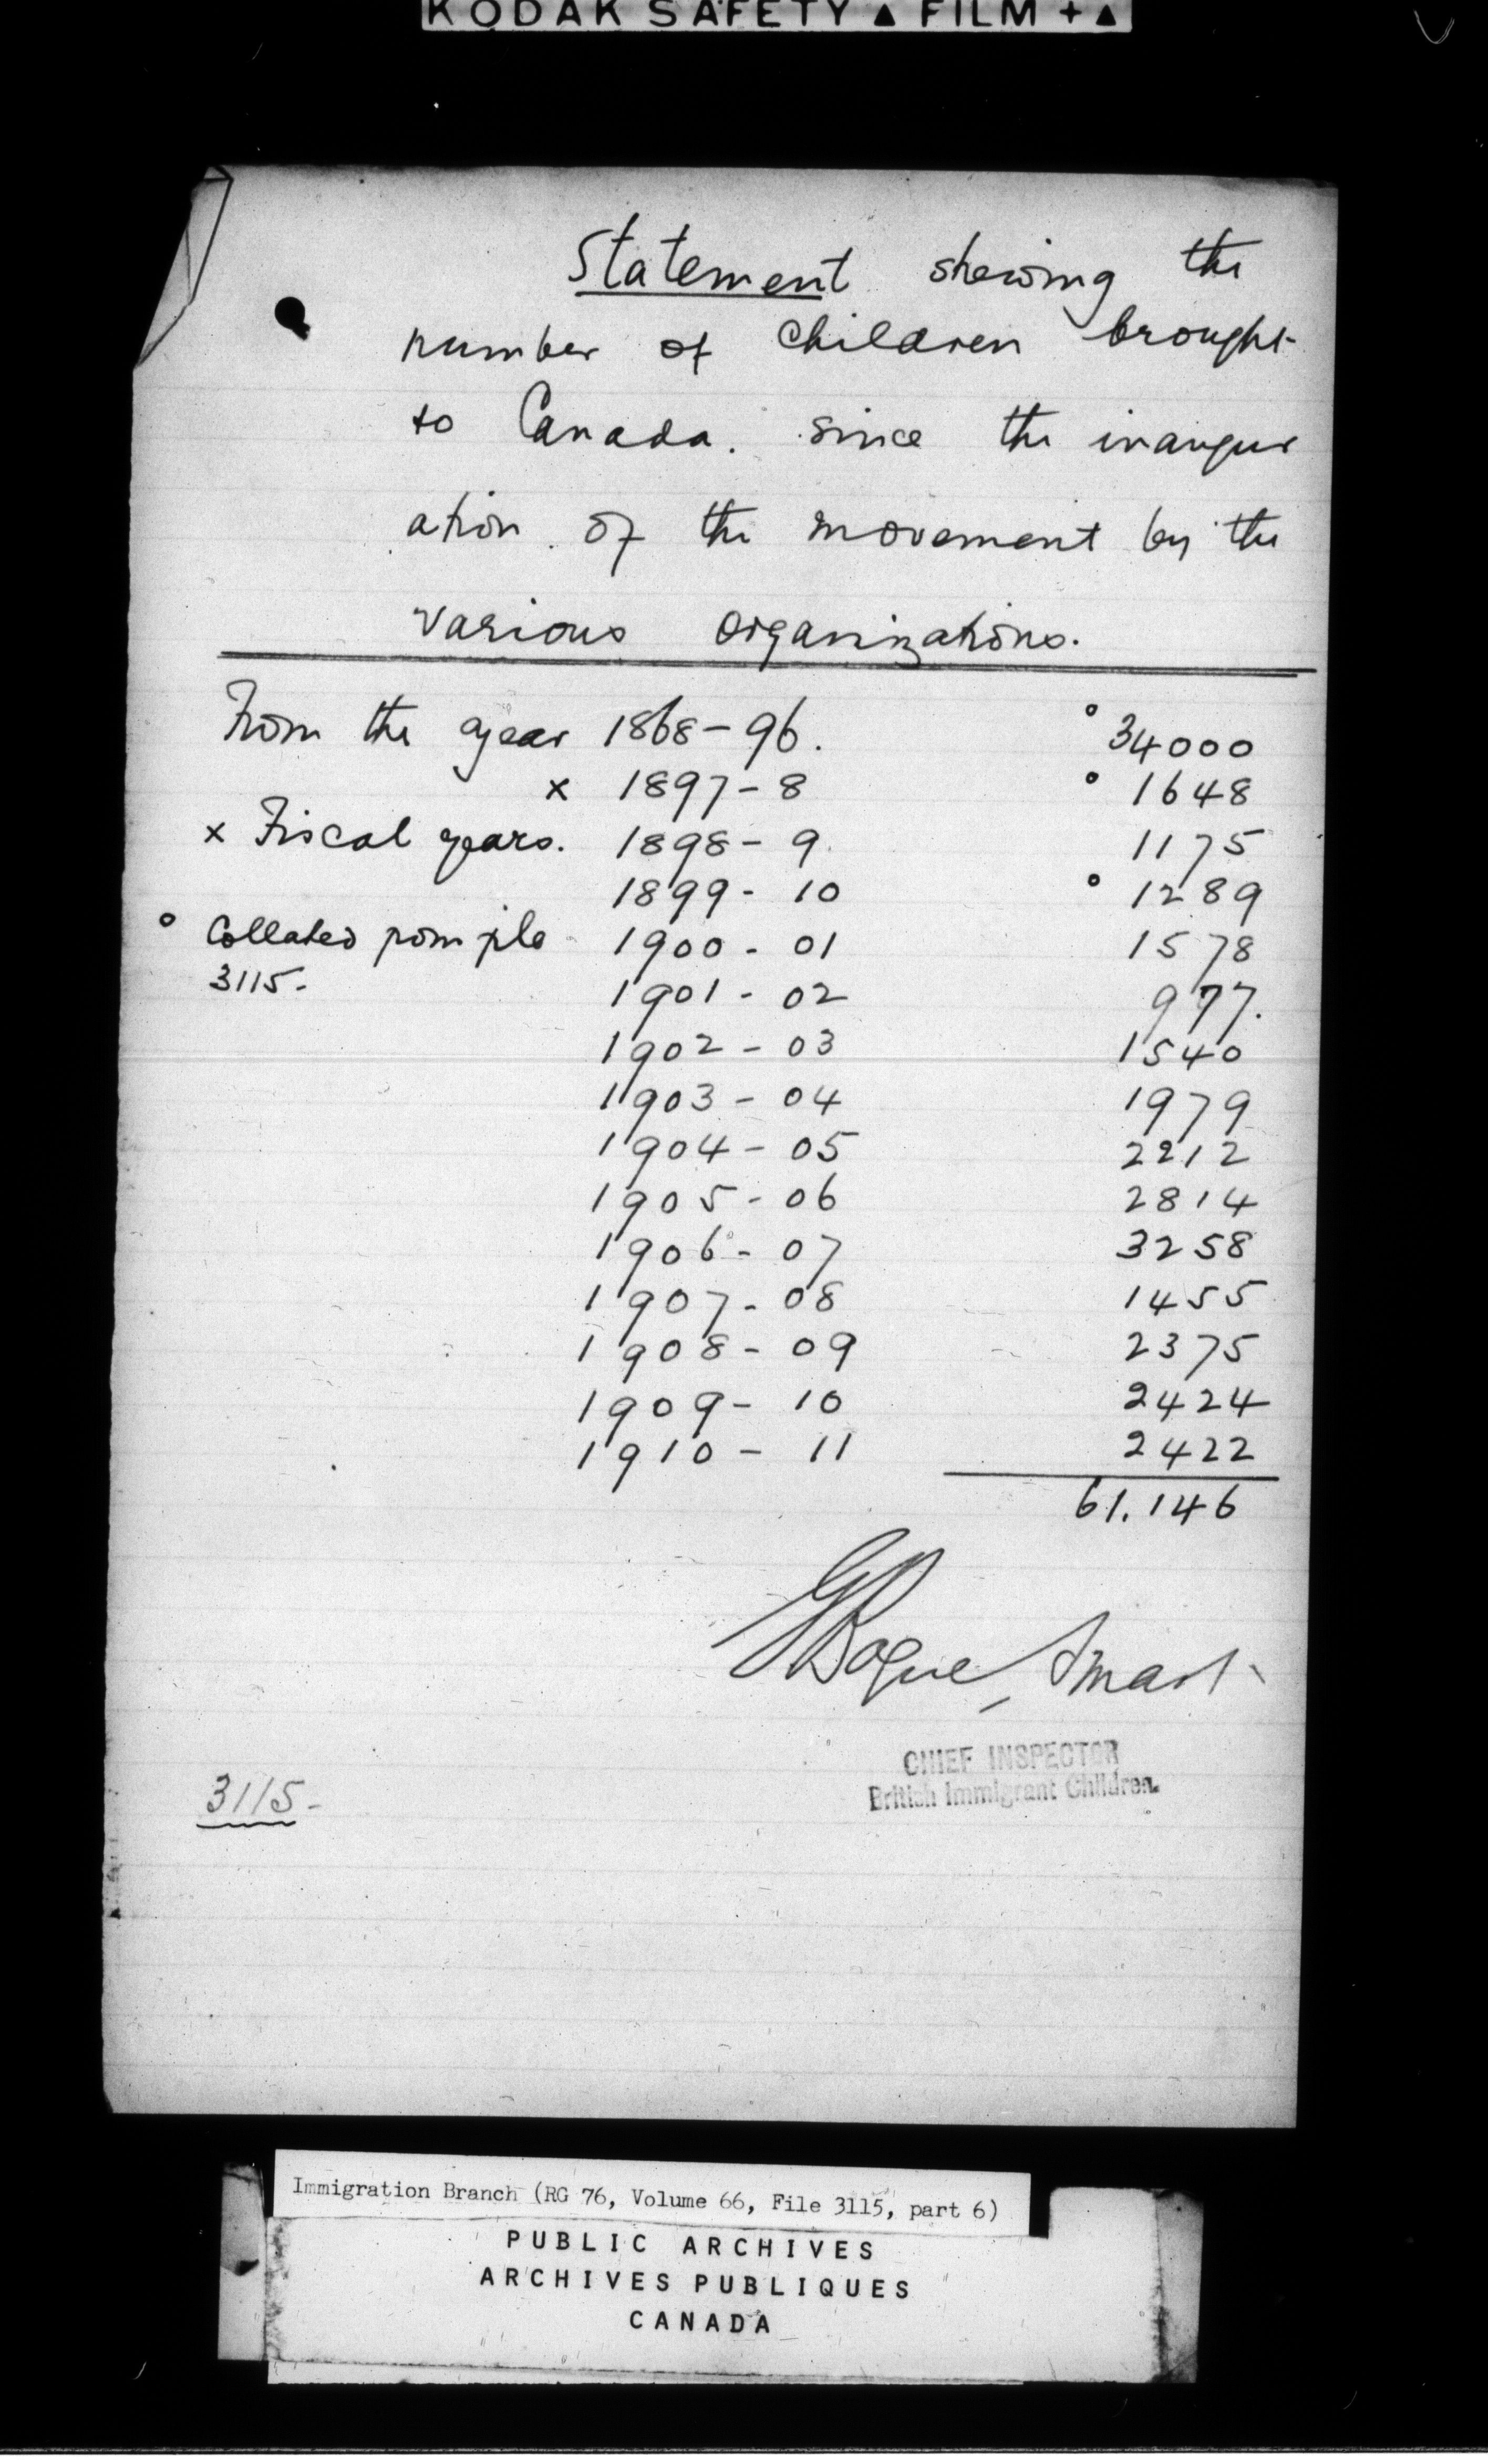 KODAK SAFETY ▲ FILM + ▲
Statement shewing the
number of children brought
to Canada. since the inaugur
ation of the movement by the
various organizations.
From the year 1868-96. ° 34000
x 1897-8 ° 1648
x Fiscal years. 1898-9. 1175
1899-10 ° 1289
° Collated from file 1900-01 1578
3115- 1901-02 977.
1902-03 1540
1903-04 1979
1904-05 2212
1905-06 2814
1906-07 3258
1907-08 1455
1908-09 2375
1909-10 2424
1910-11 2422
61.146
G Bogue Smart
CHIEF INSPECTOR
British Immigrant Children.
3115-
Immigration Branch (RG 76, Volume 66, File 3115, part 6)
PUBLIC ARCHIVES
ARCHIVES PUBLIQUES
CANADA